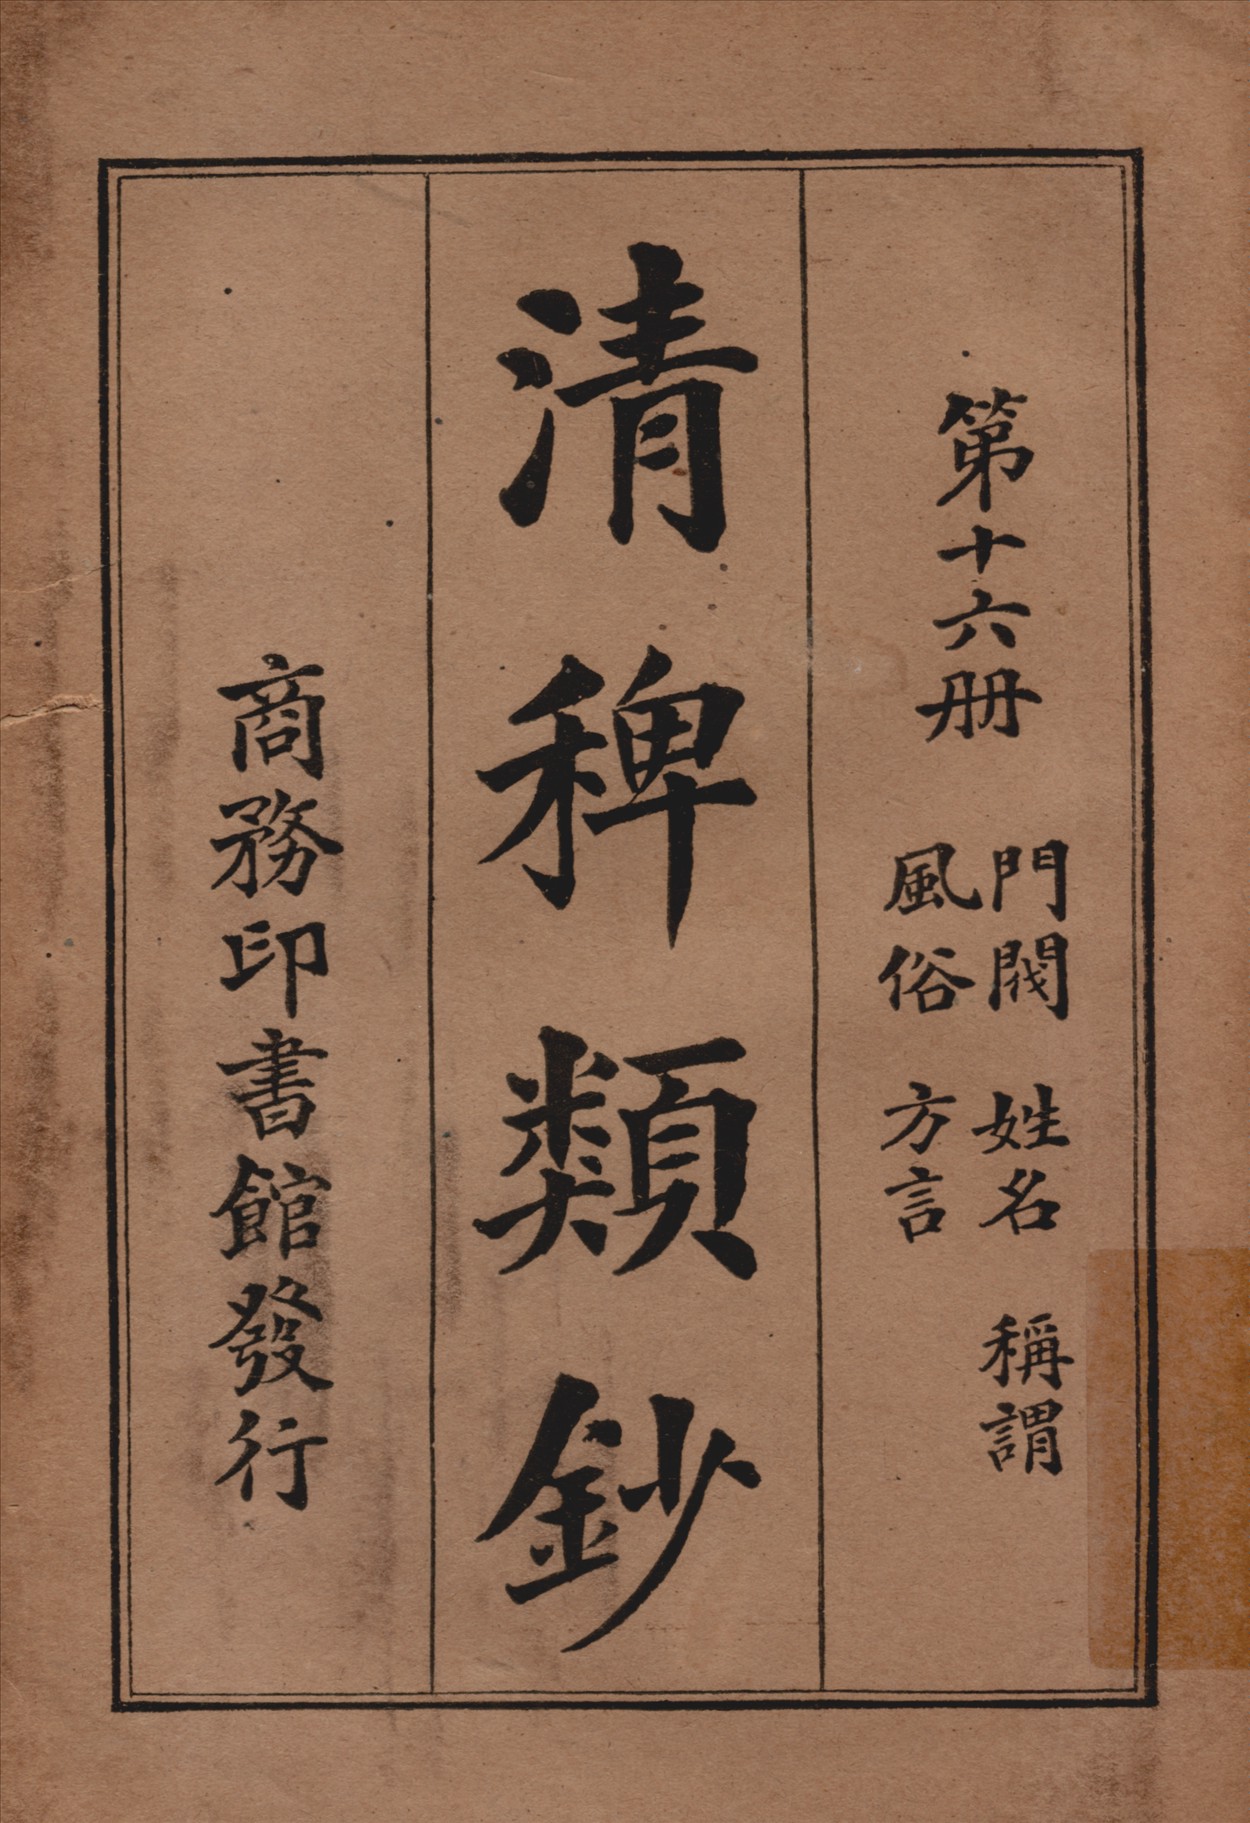 第十六册
門閥　姓名　稱謂
風俗　方言
清稗類鈔
商務印書館發行